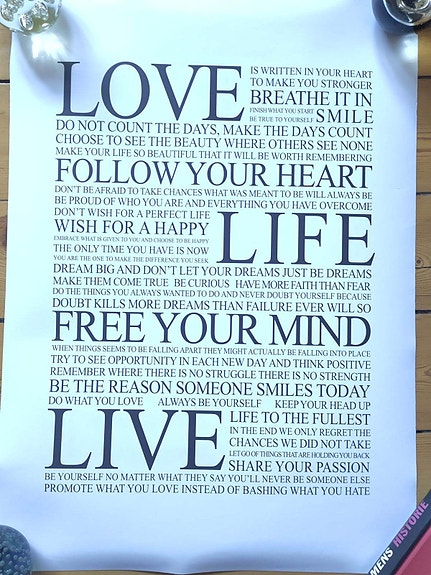 LOVE
IS WRITTEN IN YOUR HEART
TO MAKE YOU STRONGER
BREATHE IT IN
FINISH WHAT YOU START
BE TRUE TO YOURSELF
SMILE
DO NOT COUNT THE DAYS, MAKE THE DAYS COUNT
CHOOSE TO SEE THE BEAUTY WHERE OTHERS SEE NONE
MAKE YOUR LIFE SO BEAUTIFUL THAT IT WILL BE WORTH REMEMBERING
FOLLOW YOUR HEART
DON'T BE AFRAID TO TAKE CHANCES WHAT WAS MEANT TO BE WILL ALWAYS BE
BE PROUD OF WHO YOU ARE AND EVERYTHING YOU HAVE OVERCOME
DON'T WISH FOR A PERFECT LIFE
WISH FOR A HAPPY
LIFE
EMBRACE WHAT IS GIVEN TO YOU AND CHOOSE TO BE HAPPY
THE ONLY TIME YOU HAVE IS NOW
YOU ARE THE ONE TO MAKE THE DIFFERENCE YOU SEEK
DREAM BIG AND DON'T LET YOUR DREAMS JUST BE DREAMS
MAKE THEM COME TRUE BE CURIOUS HAVE MORE FAITH THAN FEAR
DO THE THINGS YOU ALWAYS WANTED TO DO AND NEVER DOUBT YOURSELF BECAUSE
DOUBT KILLS MORE DREAMS THAN FAILURE EVER WILL SO
FREE YOUR MIND
WHEN THINGS SEEMS TO BE FALLING APART THEY MIGHT ACTUALLY BE FALLING INTO PLACE
TRY TO SEE OPPORTUNITY IN EACH NEW DAY AND THINK POSITIVE
REMEMBER WHERE THERE IS NO STRUGGLE THERE IS NO STRENGTH
BE THE REASON SOMEONE SMILES TODAY
DO WHAT YOU LOVE ALWAYS BE YOURSELF KEEP YOUR HEAD UP
LIVE
LIFE TO THE FULLEST
IN THE END WE ONLY REGRET THE
CHANCES WE DID NOT TAKE
LET GO OF THINGS THAT ARE HOLDING YOU BACK
SHARE YOUR PASSION
BE YOURSELF NO MATTER WHAT THEY SAY YOU'LL NEVER BE SOMEONE ELSE
PROMOTE WHAT YOU LOVE INSTEAD OF BASHING WHAT YOU HATE
MENS HISTORIE